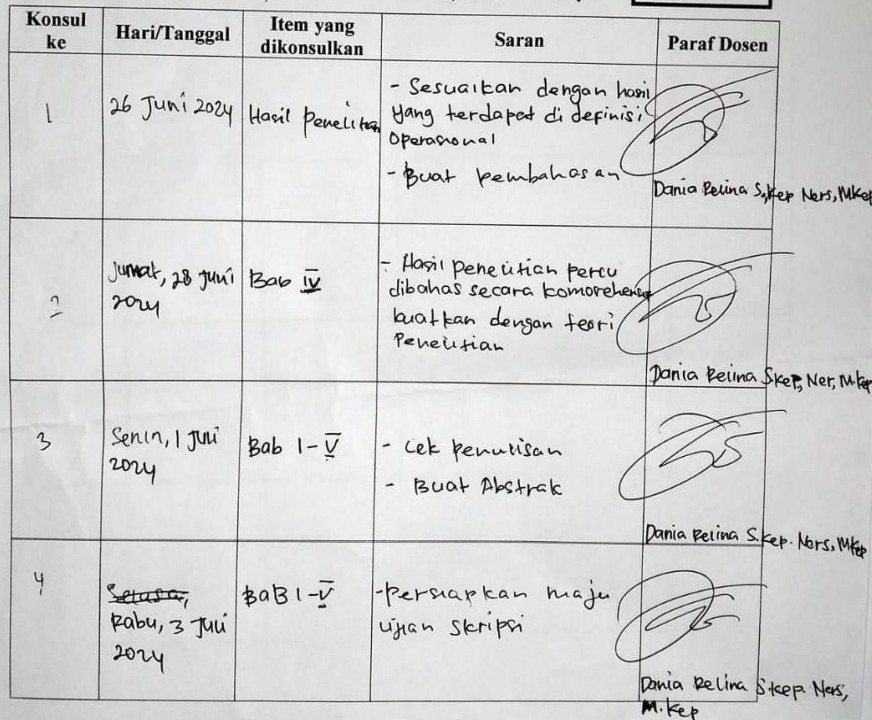 Konsul ke
Hari/Tanggal
Item yang dikonsulkan
Saran
Paraf Dosen
1
26 Juni 2024
Hasil Penelitian
- Sesuaikan dengan hasil
yang terdapat di definisi
Operasional
- Buat pembahasan
Dania Relina S.Kep Ners, MKep
2
Jumat, 28 Juni
2024
Bab IV
- Hasil penelitian perlu
dibahas secara komprehensif
kuatkan dengan teori
Penelitian
Dania Relina SKep, Ner, M.Kep
3
Senin, 1 Juli
2024
Bab I-V
- Cek Penulisan
- Buat Abstrak
Dania Relina S.Kep. Ners, MKep
4
Selasa,
Rabu, 3 Juli
2024
BAB I-V
-Persiapkan maju
ujian skripsi
Dania Relina S.Kep. Ners,
M.Kep